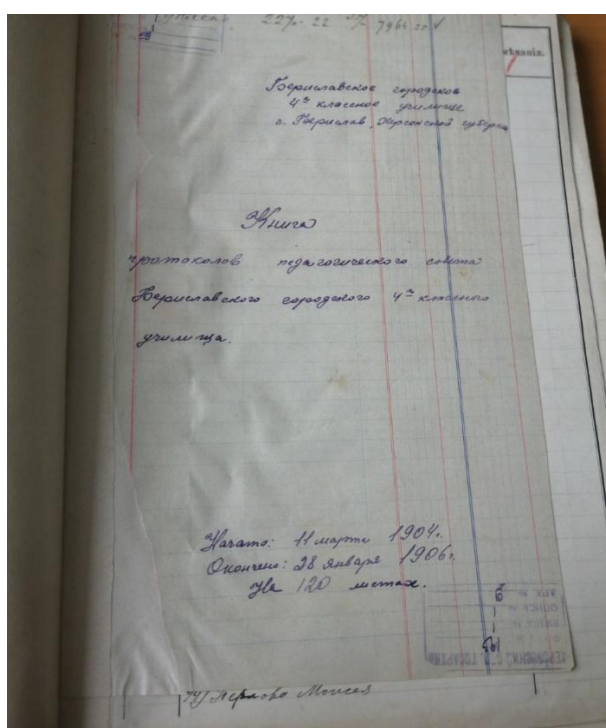 Бериславское городское
4х классное училище
г. Берислав, Херсонской губернии
Книга
протоколов педагогического совета
Бериславского городского 4х классного
училища.
Начато: 11 марта 1904г.
Окончено: 28 января 1906г.
На 120 листах.